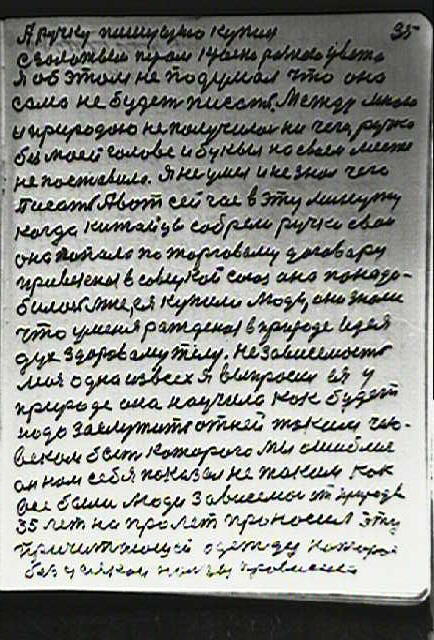 А ручку пишущую купил 35
с золотым пером красно разного цвета
я об этом не подумал что она
сама не будет писать, Между мною
и природою не получилось ни чего, ручка
без моей голове и буквы на своем месте
не поставила. Я не умел и не знал чего
писать А вот сей час в эту минуту
когда китайцы собрали ручки свои
она попала по торговому договору
привезена в советской союз она понадо-
билась мне, ея купили люди, они знали
что у меня рождена в природе идея
дух здоровому телу. Независимость
моя одна из всех я выпросил ея у
природе она научила как будет
надо заслужить от ней таким чело-
веком быть которого мы ошиблись
он нам себя показал не таким как
все были люди зависемои от природе
35 лет на пролет проносил эту
причитающей одежду которой
без у всякой